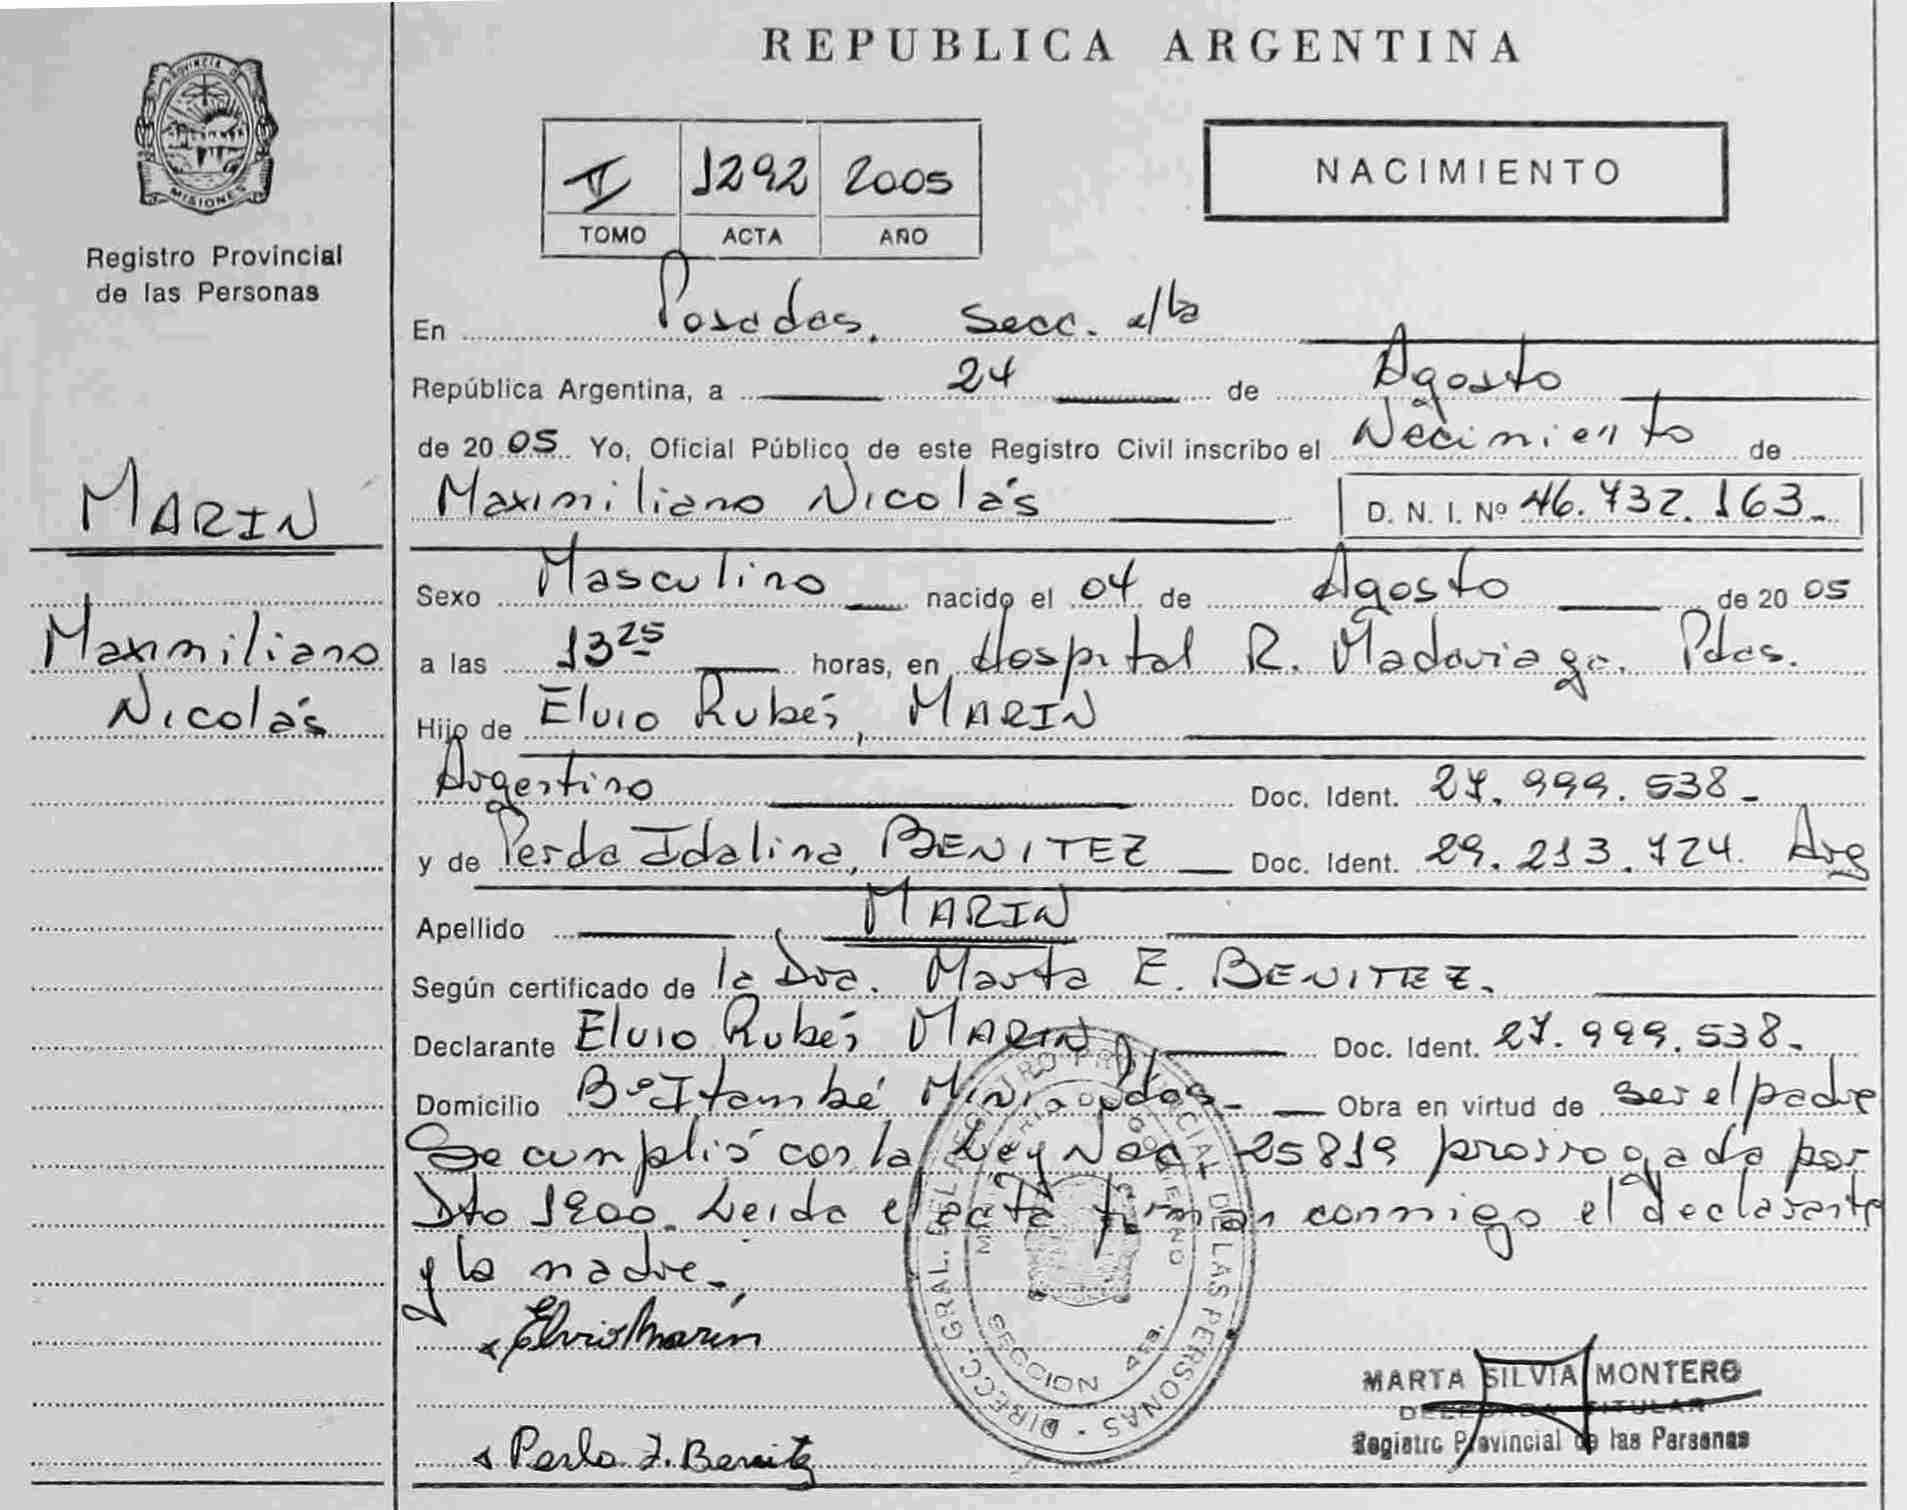 REPUBLICA ARGENTINA
PROVINCIA DE
MISIONES
Registro Provincial
de las Personas
II 1292 2005
TOMO ACTA AÑO
NACIMIENTO
En Posadas. Secc. 4ta
República Argentina, a 24 de Agosto
de 2005 Yo, Oficial Público de este Registro Civil inscribo el Nacimiento de
Maximiliano Nicolás D. N. I. Nº 46.732.163.-
MARIN
Maximiliano
Nicolás
Sexo Masculino nacido el 04 de Agosto de 2005
a las 13 25 horas, en Hospital R. Madariaga. Pdas.
Hijo de Elvio Rubén, MARIN
Argentino Doc. Ident. 27.999.538.-
y de Perla Idalina, BENITEZ Doc. Ident. 29.213.724. Arg
Apellido MARIN
Según certificado de la Dra. Marta E. BENITEZ.
Declarante Elvio Rubén MARIN Doc. Ident. 27.999.538.-
Domicilio Bº Itambé Mini. Pdas.- Obra en virtud de ser el padre
Se cumplió con la Ley Nac. 25819 prorrogada por
Dto 1900. Leida el acta firman conmigo el declarante
y la madre.-
Elvio Marin
Perla I. Benitez
DIRECC. GRAL. DEL REGISTRO PROVINCIAL DE LAS PERSONAS
MINISTERIO DE GOBIERNO
SECCION 4ta.
MARTA SILVIA MONTERO
DELEGADA TITULAR
Registro Provincial de las Personas